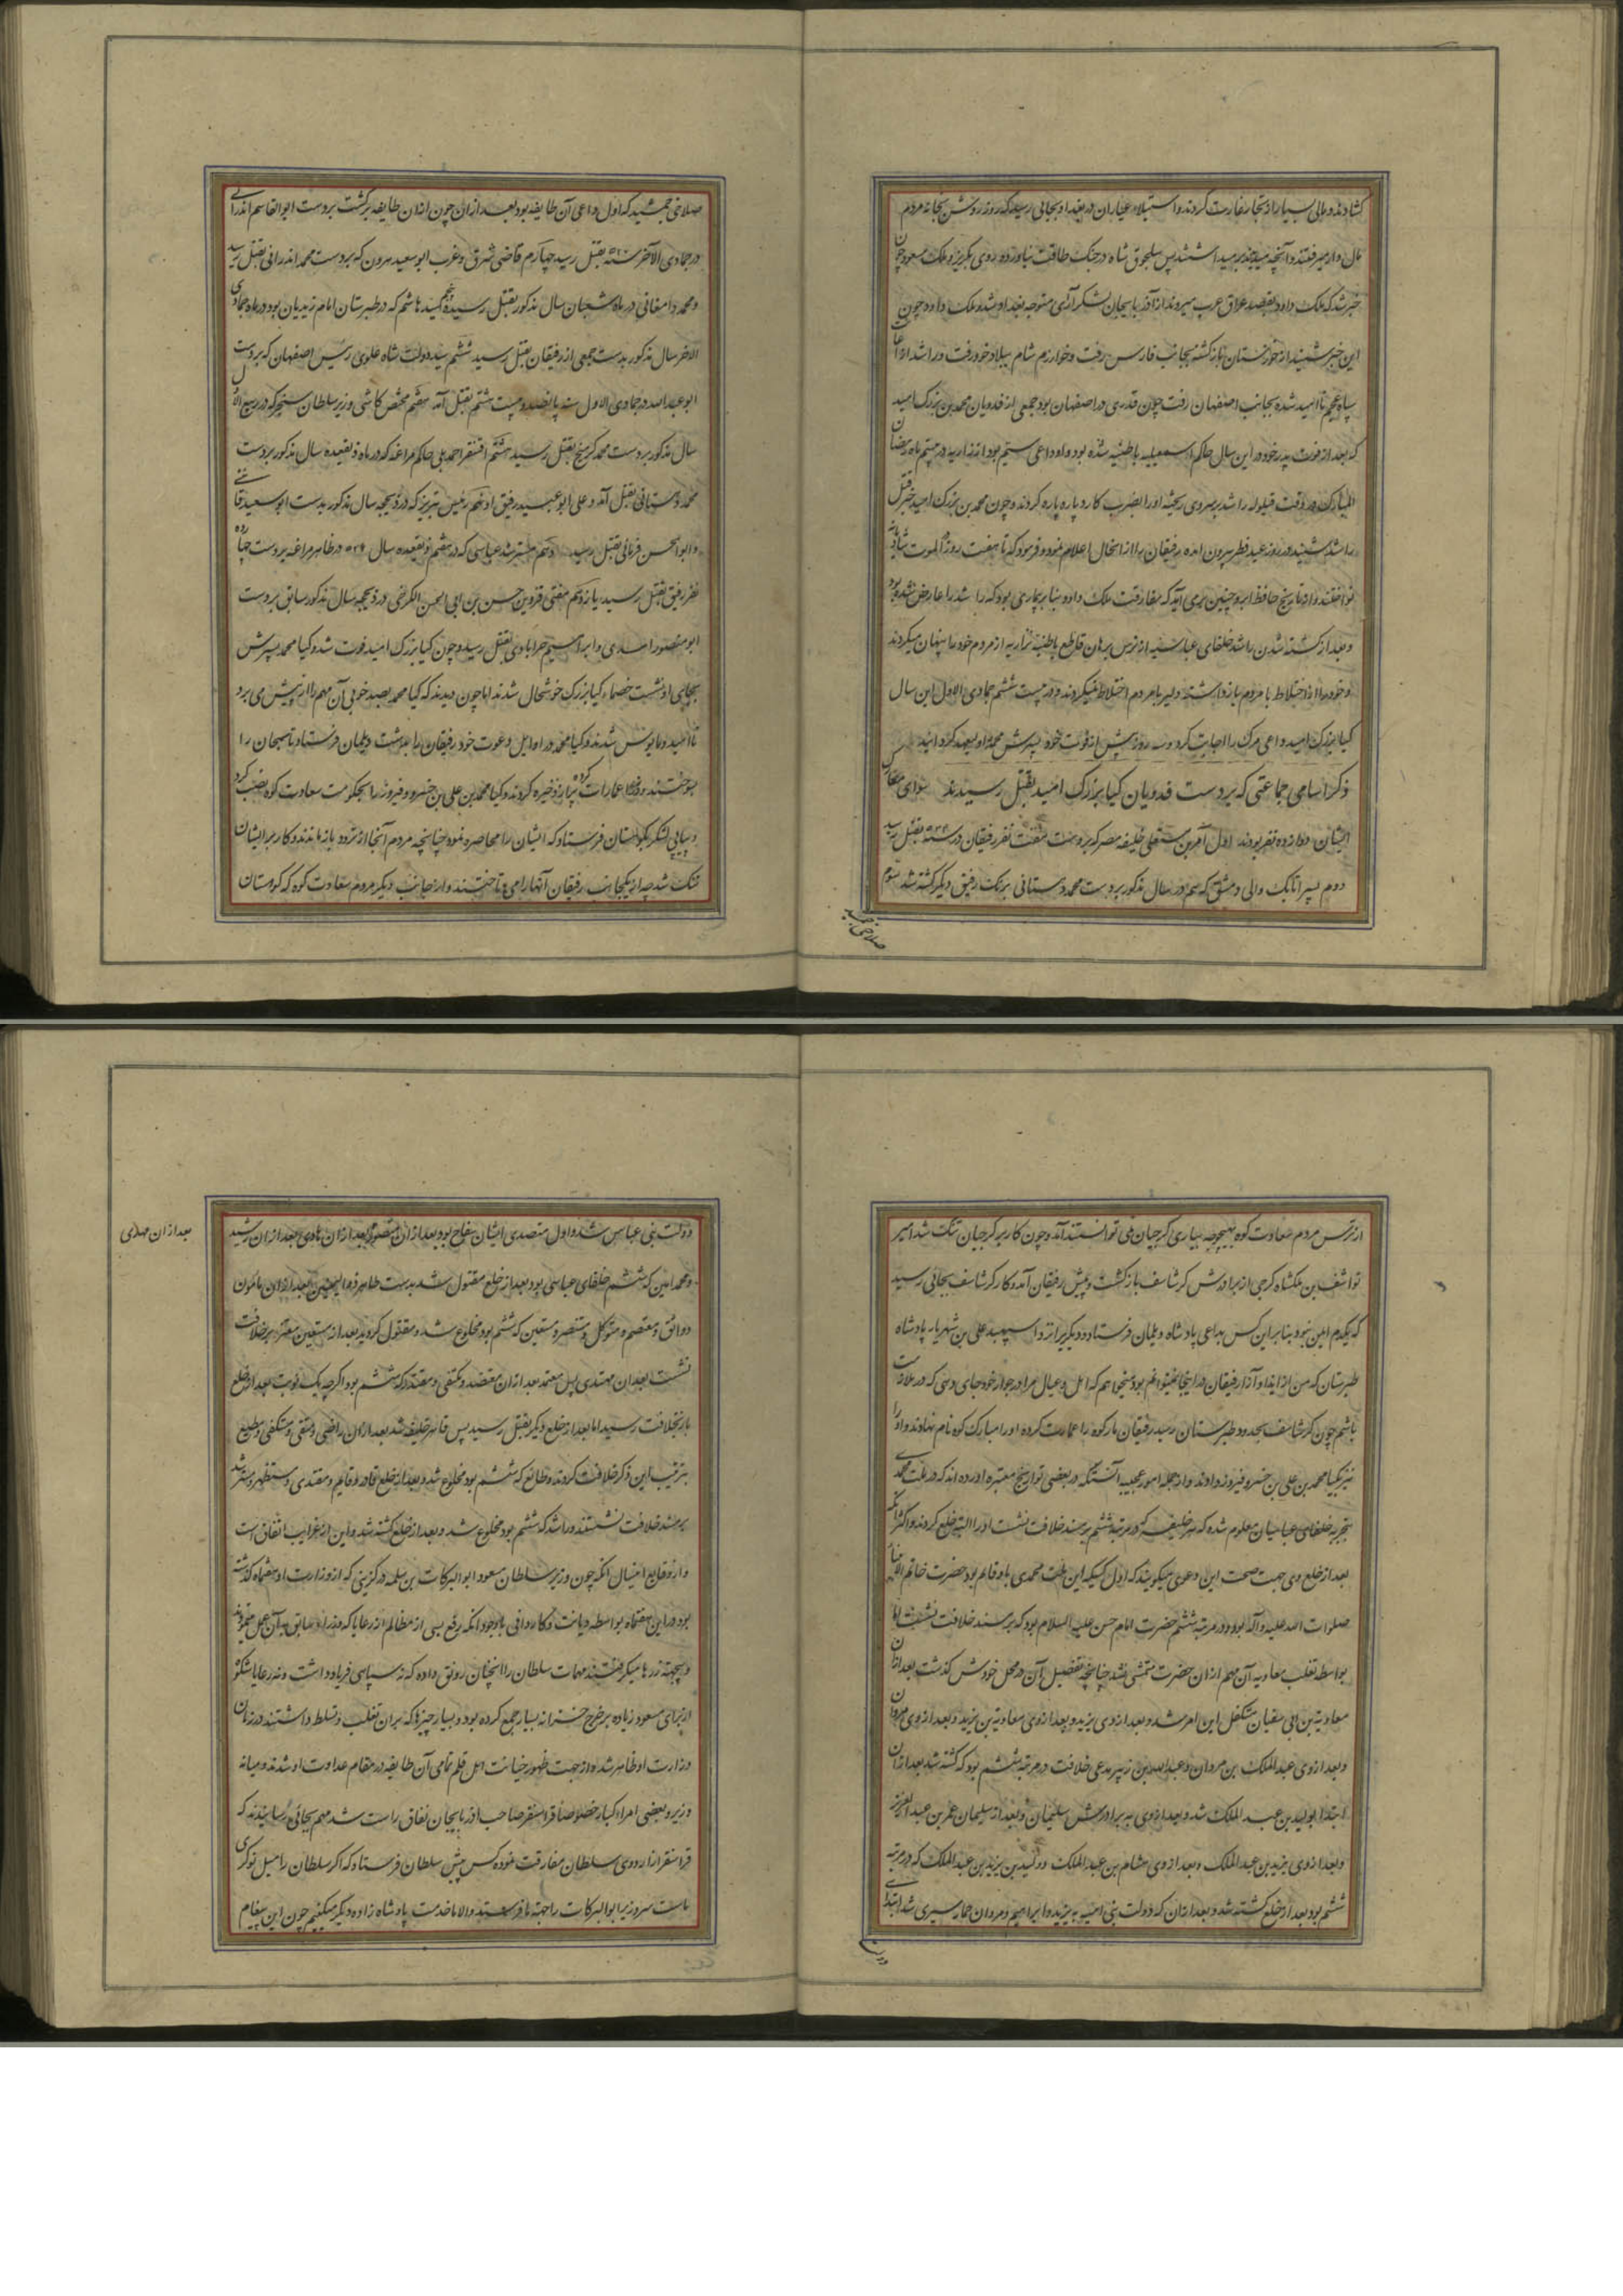 کشادند و مالی بسیار از تجار غارت کردند و استیلاء عیاران در بغداد بجائی رسید که روز روشن بخانه مردم
مال دار میرفتند و آنچه میدیدند برمیداشتند پس سلجوق شاه در جنک طاقت نیاورده روی بگریز و ملک مسعود چون
خبر شد که ملک داود بقصد عراق عرب میرود از آذربایجان لشکر آرای متوجه بغداد شد و ملک داود چون
این خبر شنید از خوزستان بازکشته بجانب فارس رفت و خوارزم شام ببلاد خود رفت و راشد از
سپاه عجم ناامید شده بجانب اصفهان رفت چون قدری در اصفهان بود جمعی از فدویان محمد بن بزرک امید
که بعد از فوت پدر خود در این سال حاکم اسمعیلیه باطنیه شده بود و او داعی سیم بود از نزاریه در بیستم ماه رمضان
المبارک در وقت قیلوله راشد بر سر وی ریخته او را بضرب کارد پاره پاره کردند و چون محمد بن بزرک امید خبر قتل
راشد شنید در روز عید فطر بیرون آمده رفیقان را از انحال اعلام نمود و فرمود که تا هفت روز در الموت شادیانه
نواختند و از تاریخ حافظ ابرو چنین برمی آید که مفارقت ملک داود بنا بر بیماری بود که راشد را عارض شده بود
و بعد از کشته شدن راشد خلفای عباسیه از ترس برهان قاطع باطنیه نزاریه از مردم خود را پنهان میکردند
و خود را از اختلاط با مردم باز داشته دلیر با مردم اختلاط نمیکردند و در بیست ششم جمادی الاول این سال
کیا بزرک امید داعی مرک را اجابت کرد و سه روز پیش از فوت خود پسرش محمد را ولیعهد کردانید
ذکر اسامی جماعتی که بر دست فدویان کیا بزرک امید بقتل رسیدند سوای معارک
ایشان دوازده نفر بودند اول آمر بن مستعلی خلیفه مصر که بر دست هفت نفر رفیقان در سنه ۵۲۴ بقتل رسید
دوم پسر اتابک والی دمشق که هم در سال مذکور بر دست محمد دهستانی بر یک رفیق دیکر کشته شد سیوم
صلاحی جمشید
صلاحی جمشید که اول داعی آن طایفه بود بعد از ان چون از ان طایفه برکشت بر دست ابوالقاسم اندرانی
در جمادی الآخر سنه بقتل رسید چهارم قاضی شرق و غرب ابوسعید هرون که بر دست محمد اندرانی بقتل رسید
و محمد دامغانی در ماه شعبان سال مذکور بقتل رسیده پنجم سید هاشم که در طبرستان امام زیدیان بود در ماه جمادی
الاخر سال مذکور بدست جمعی از رفیقان بقتل رسید ششم سید دولت شاه علوی رئیس اصفهان که بر دست
ابوعبدالله در جمادی الاول سنه پانصد و بیست ششم بقتل آمد هفتم مختص کاشی وزیر سلطان سنجر که در ربیع الاول
سال مذکور بر دست محمد کرمیخ بقتل رسید هشتم اقسنقر احمدیلی حاکم مراغه که در ماه ذیقعیده سال مذکور بر دست
محمد دهستانی بقتل آمد و علی ابوعبید رفیق او نهم رئیس تبریز که در ذیحجه سال مذکور بدست ابوسعید قائنی
و ابوالحسن فرمانی بقتل رسید دهم مسترشد عباسی که در هفتم ذیقعیده سال ۵۲۹ در ظاهر مراغه بر دست چهارده
نفر رفیق بقتل رسید یازدهم مفتی قزوین حسن بن ابی الحسن الکرخی در ذیحجه سال مذکور سابق بر دست
ابومنصور اسدی و ابراهیم خرابادی بقتل رسید و چون کیا بزرک امید فوت شد و کیا محمد پسرش
بجای او نشست خصماء کیا بزرک خوشحال شدند اما چون دیدند که کیا محمد بصد خوبی آن مهم را از پیش می برد
ناامید و مایوس شدند و کیا محمد در اوایل دعوت خود رفیقان را بدشت دیلمان فرستاد تا سیجان را
بسوختند و در عمارات کرده بسیار ذخیره کردند و کیا محمد بن علی بن خسرو فیروز را بحکومت سعادت کوه نصب کرد
و پیاپی لشکر بکوهستان فرستاد که ایشان را محاصره نمود چنانچه مردم آنجا از تردد بازماندند و کار بر ایشان
تنک شد چه از یکجانب رفیقان آنها را می تاختند و از جانب دیکر مردم سعادت کوه که کوهستان
از ترس مردم سعادت کوه بهیچوجه بیاری کرجیان نمی توانستند آمد و چون کار بر کرجیان تنک شد امیر
نواشف بن ملکشاه کرجی از برادرش کرشاسف بازکشت و پیش رفیقان آمد و کار کرشاسف بجائی رسید
که بیکدم امین نبود بنابراین کس بداعی پادشاه دیلمان فرستاد و دیکریرا نزد اسپهبد علی بن شهریار پادشاه
طبرستان که من از ایذا و آزار رفیقان در اینجا نمیتوانم بود میخواهم که اهل و عیال مرا در جوار خود جای دهی که در ملازمت
باشم چون کرشاسف بحدود طبرستان رسید رفیقان مارکوه را عمارت کرده او را مبارک کوه نام نهادند و او را
نیز بکیا محمد بن علی بن خسرو فیروز دادند و از جمله امور عجیبه آنستکه در بعضی تواریخ معتبره آورده اند که در ملت محمدی
بتجربه خلفای عباسیان معلوم شده که هر خلیفه که در مرتبه ششم بر مسند خلافت نشست او را البته خلع کردند و اکثر آنکه
بعد از خلع وی جهت صحت این دعوی میکویند که اول کسیکه این ملت محمدی باو قایم بود حضرت خاتم الانبیا
صلوات الله علیه و آله بود و در مرتبه ششم حضرت امام حسن علیه السلام بود که بر مسند خلافت نشست اما
بواسطه تغلب معاویه آن مهم از ان حضرت متمشی نشد چنانچه تفصیل آن در محل خودش کذشت بعد از ان
معاویة بن ابی سفیان متکفل این امر شد و بعد از وی یزید و بعد از وی معاویة بن یزید و بعد از وی مروان
و بعد از وی عبدالملک بن مروان و عبدالله بن زبیر مدعی خلافت در مرتبه ششم بود که کشته شد بعد از ان
ابتدا بولید بن عبد الملک شد و بعد از وی به برادرش سلیمان و بعد از سلیمان عمر بن عبد العزیز
و بعد از وی یزید بن عبدالملک و بعد از وی هشام بن عبد الملک و ولید بن یزید بن عبدالملک که در مرتبه
ششم بود بعد از خلع کشته شد و بعد از ان که دولت بنی امیه به یزید و ابراهیم و مروان حمار سپری شد ابتدای
دولت
دولت بنی عباس شد و اول متصدی ایشان سفاح بود و بعد از ان منصور بعد از ان هادی بعد از ان رشید
بعد از ان مهدی
و محمد امین که ششم خلفای عباسی بود بعد از خلع مقتول شد بدست طاهر ذوالیمینین بعد از ان مامون
و واثق و معتصم و متوکل و منتصر و مستعین که ششم بود مخلوع شد و مقتول کردید بعد از مستعین معتز بر خلافت
نشست بعد از ان مهتدی پس معتمد بعد از ان معتضد و مکتفی و مقتدر که ششم بود اکرچه یک نوبت بعد از خلع
باز بخلافت رسید اما بعد از خلع دیکر بقتل رسید پس قاهر خلیفه شد بعد از ان راضی و متقی و مستکفی و مطیع
بترتیب این ذکر خلافت کردند و طائع که ششم بود مخلوع شد و بعد از خلع قادر و قایم و مقتدی و مستظهر و مسترشد
بر مسند خلافت نشستند و راشد که ششم بود مخلوع شد و بعد از خلع کشته شد و این از غرایب اتفاق است
و از وقایع اینسال آنکه چون وزیر سلطان مسعود ابوالبرکات بن سلمه درکزینی که از وزارت او هفتماه کذشته
بود و در این هفتماه بواسطه دیانت و کاردانی باوجود انکه رفع بسی از مظالم از رعایا که وزراء سابق بدان عمل مینمودند
و بجهته زرها میکرفتند مهمات سلطان را انچنان رونق داده که نه سپاهی فریاد داشت و نه رعایا شکوه
از برای مسعود زیاده بر خرج خزانه بسیار جمع کرده بود و بسیار چیزها که بران تغلب و تسلط داشتند در زمان
وزارت او ظاهر شد و از جهت ظهور خیانت اهل قلم تمامی آن طایفه در مقام عداوت او شدند و میانه
وزیر و بعضی امراء کبار خصوصا قراسنقر صاحب اذربایجان نفاق راست شد مهم بجائی رسانیدند که
قراسنقر از اردوی سلطان مفارقت نموده کس پیش سلطان فرستاد که اکر سلطان را میل نوکری
ماست سر وزیر ابوالبرکات را جهته ما فرستند و الا ما خدمت پادشاه زاده دیکر میکنیم چون این پیغام